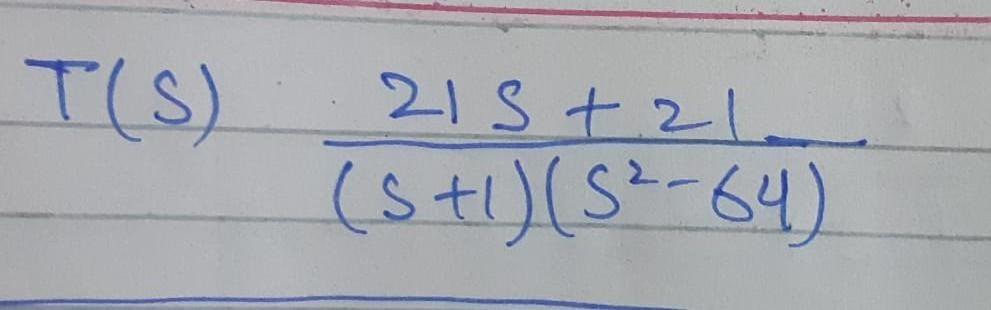 T(S) 21S + 21
(S+1)(S²-64)